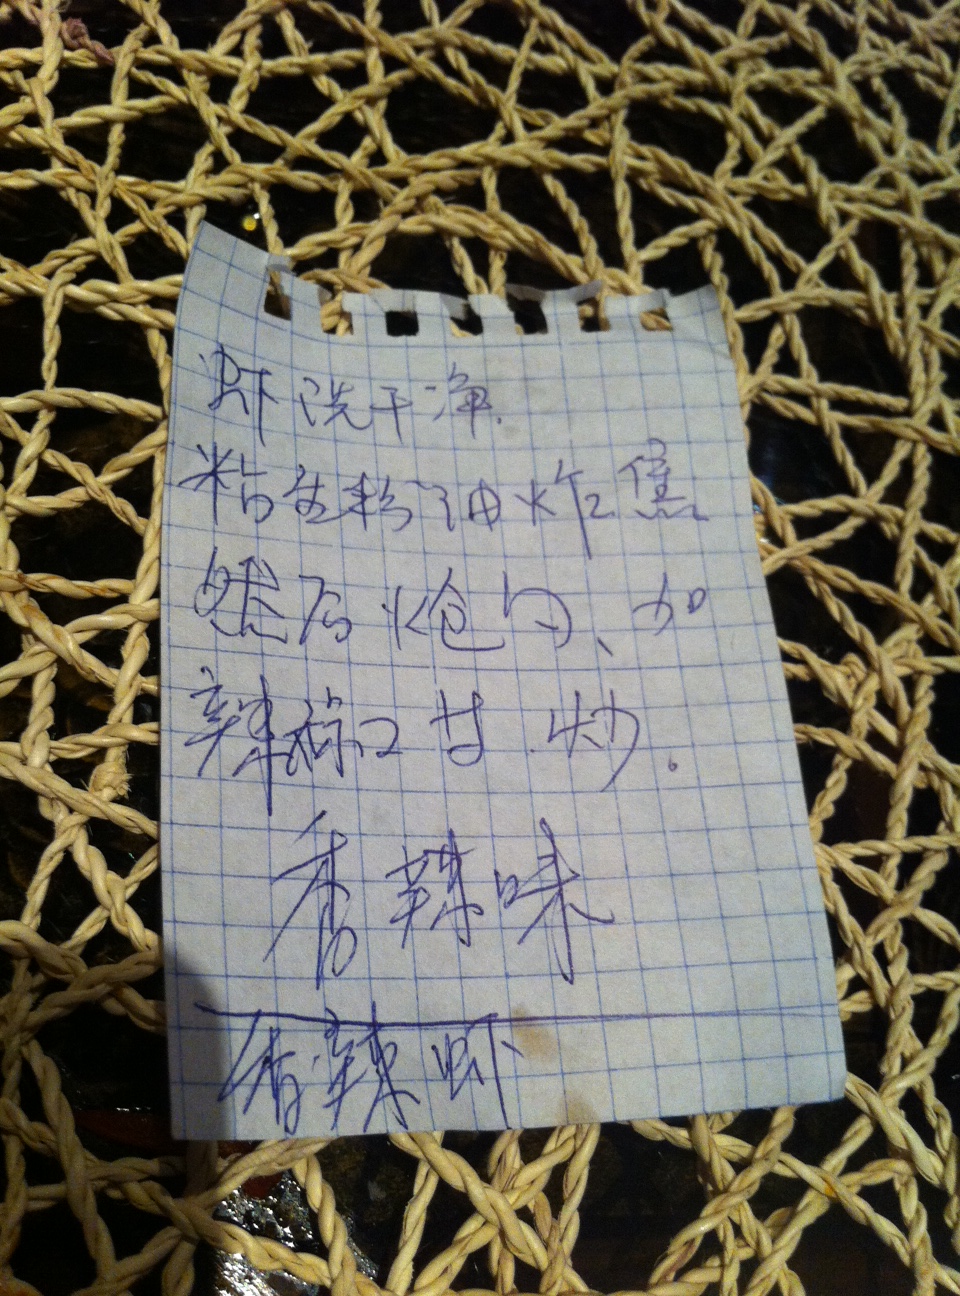 虾洗干净.
粘生粉油炸焦
然后炝勺、加
辣椒口甘炒.
香辣味
香辣虾